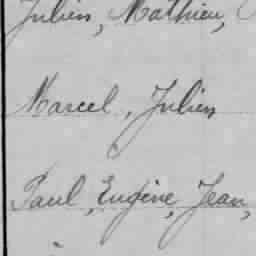 Julien, Mathieu,
Marcel, Julien
Paul, Eugène, Jean,